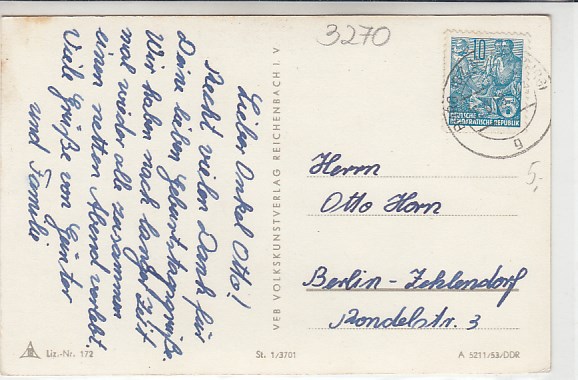 3270
Lieber Onkel Otto!
Recht vielen Dank für
Deine lieben Geburtstagsgrüße.
Wir haben nach langer Zeit
mal wieder alle zusammen
einen netten Abend verlebt.
Viele Grüße von Günter
und Familie
VEB VOLKSKUNSTVERLAG REICHENBACH I. V
10
DEUTSCHE
DEMOKRATISCHE REPUBLIK
5
g
5,
Herrn
Otto Horn
Berlin-Zehlendorf
Rondelstr. 3
Liz.-Nr. 172
St. 1/3701
A 5211/53/DDR